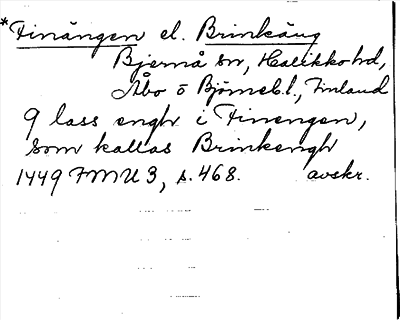 *Finängen el. Brinkäng
Bjernå sn, Halikko hd,
Åbo o Björneb. l., Finland
9 lass engh i Finengen,
som kallas Brinkengh
1449 FMU 3, s. 468. avskr.